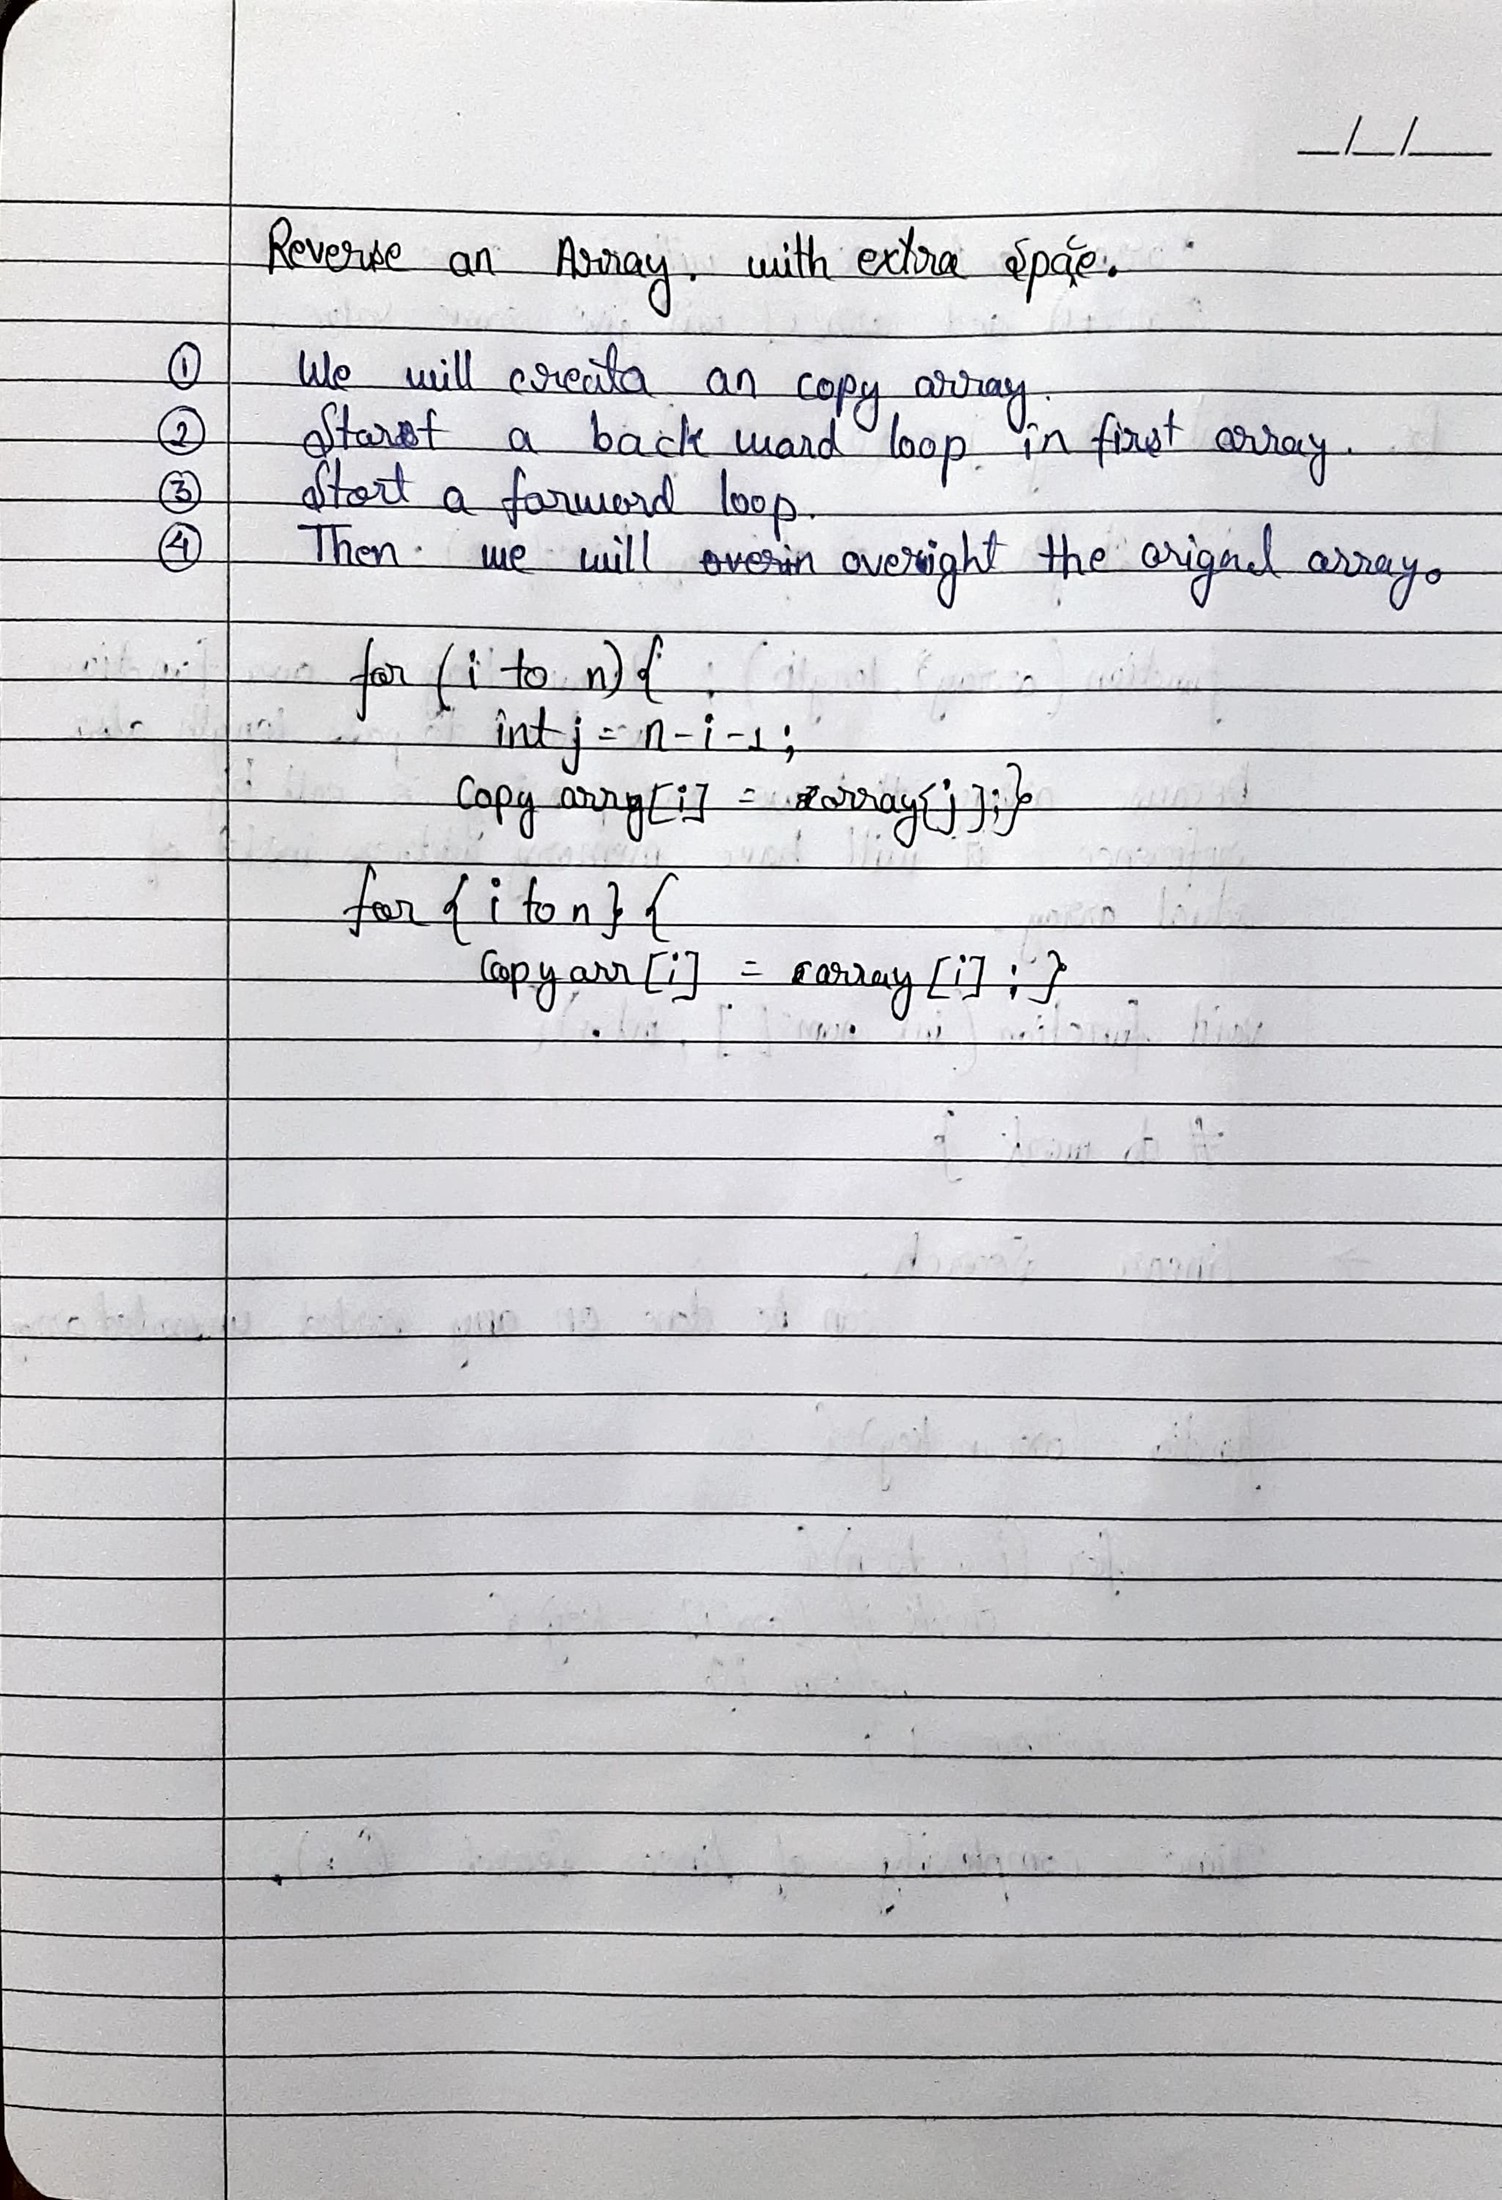 Reverse an Array. with extra space.
① We will creata an copy array.
② Start a back ward loop in first array.
③ Start a forword loop.
④ Then we will overin overight the orignal array.
for (i to n) {
int j = n-i-1;
Copy arry[i] = array[j];}
for { i to n } {
Copy arr [i] = array [i] ; }